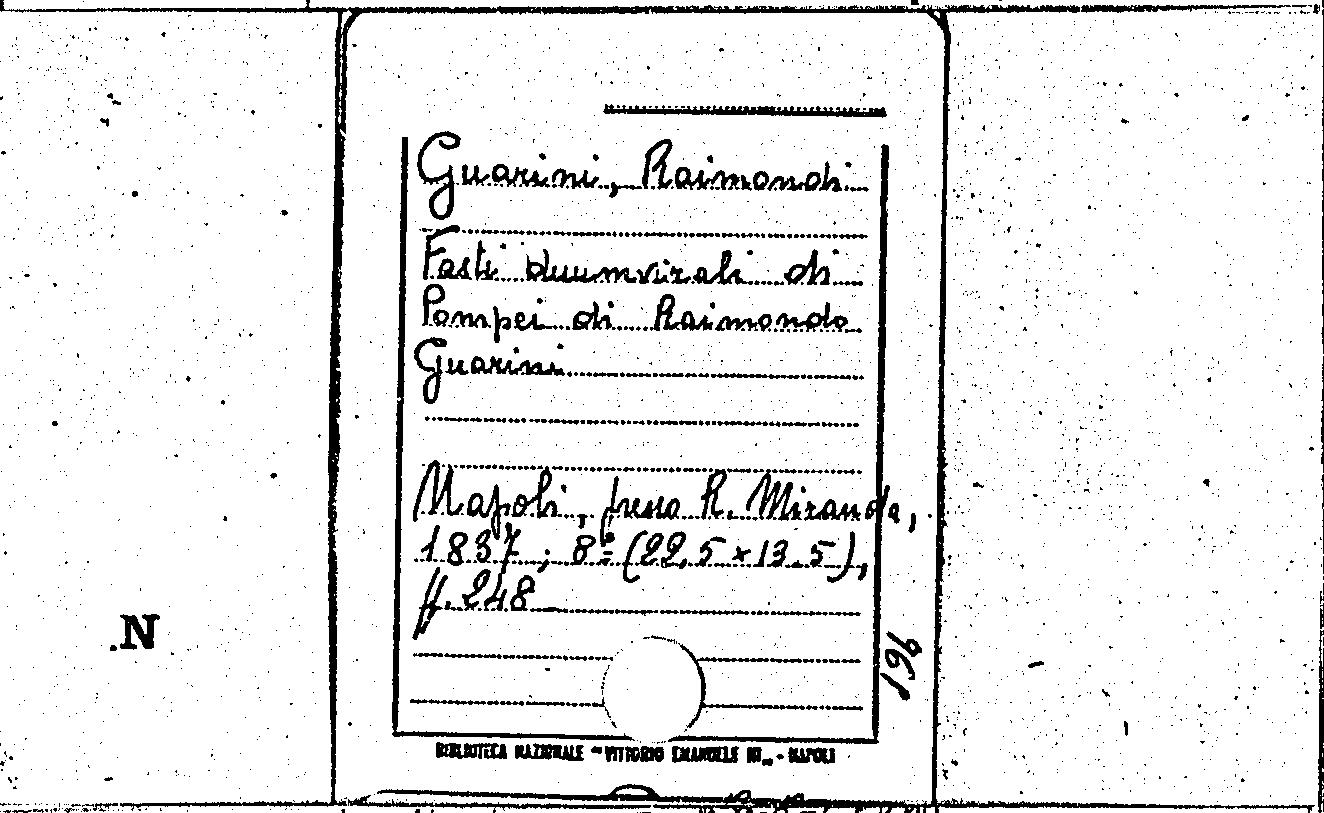 Guarini, Raimondi
Fasti duumvirali di
Pompei di Raimondo
Guarini
Napoli, presso R. Miranda,
1837; 8º (22,5 x 13.5),
pp. 248
196
.N
BIBLIOTECA NAZIONALE "VITTORIO EMANUELE III" - NAPOLI